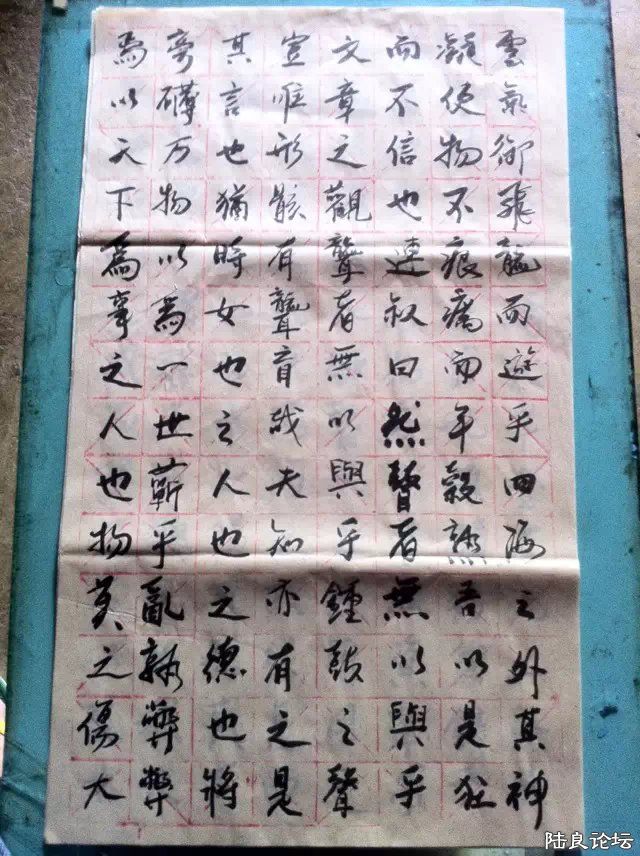 雲氣御飛龍而遊乎四海之外其神
凝使物不痕癘而年穀熟吾以是狂
而不信也連叔曰然瞽者無以與乎
文章之觀聾者無以與乎鍾鼓之聲
豈唯形骸有聾盲哉夫知亦有之是
其言也猶時女也之人也之德也將
旁礴万物以為一世蘄乎亂孰弊弊
焉以天下為事之人也物莫之傷大
陆良论坛